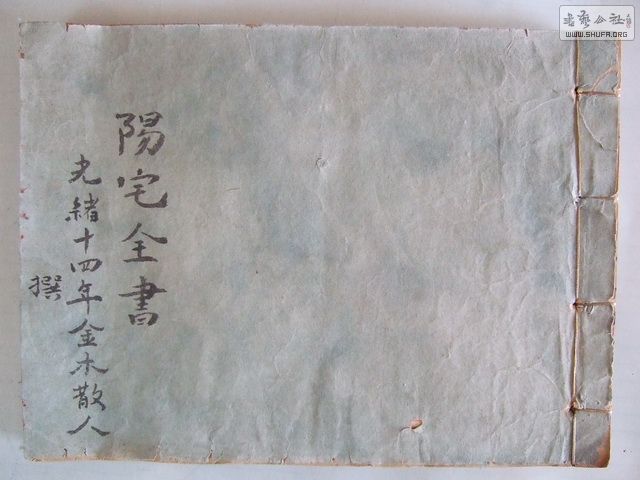 陽宅全書
光緒十四年金木散人
撰
書藝公社
WWW.SHUFA.ORG